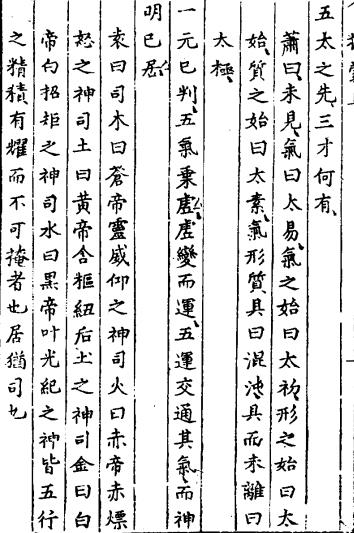 五太之先三才何有
蕭曰未見氣曰太易氣之始曰太初形之始曰太
始質之始曰太素氣形質具曰混沌具而未離曰
太極
一元已判五氣乗虗虗變而運五運交通其氣而神
明已居
袁曰司木曰蒼帝靈威仰之神司火曰赤帝赤熛
怒之神司土曰黄帝含樞紐后土之神司金曰白
帝白招矩之神司水曰黒帝叶光紀之神皆五行
之精精有耀而不可掩者也居猶司也